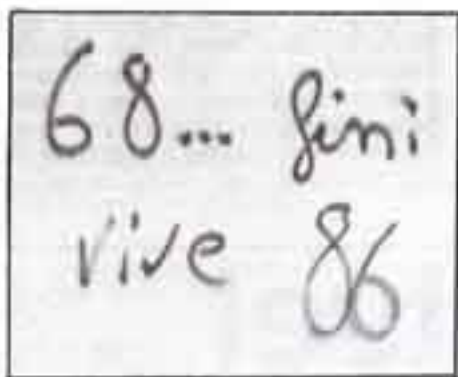 68... fini
vive 86